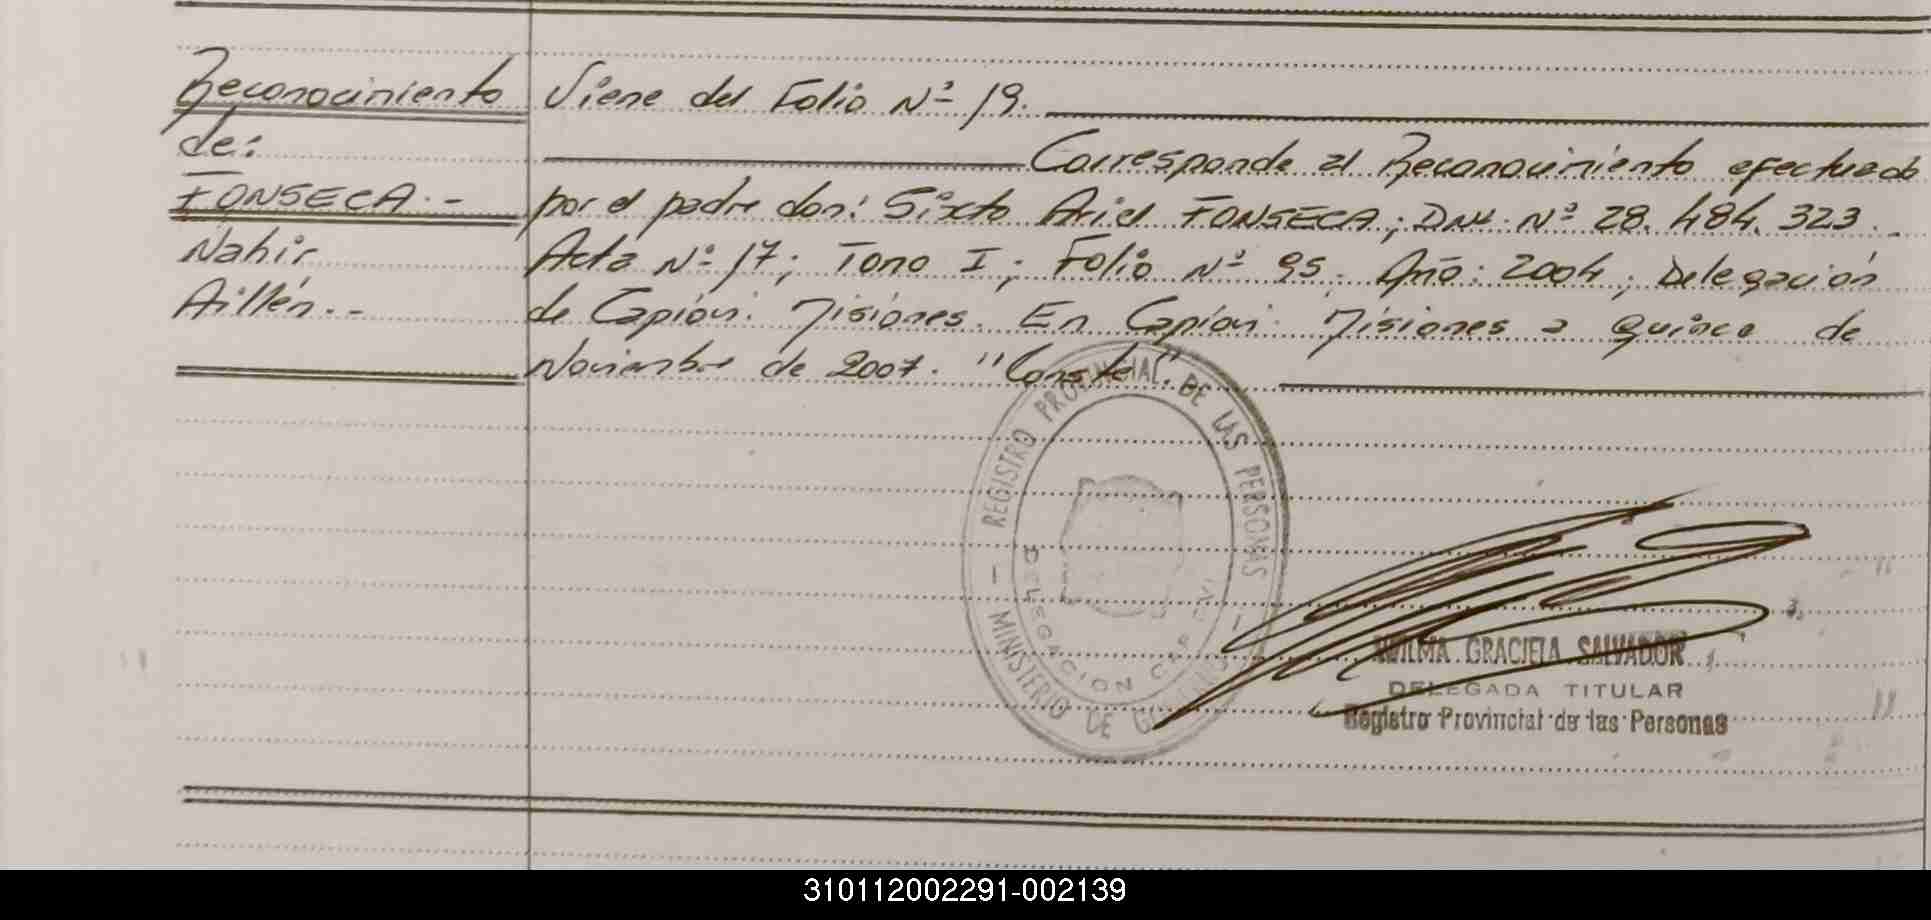 Reconocimiento
de:
FONSECA.-
Nahir
Aillén.-
Viene del Folio Nº 19.
Corresponde al Reconocimiento efectuado
por el padre don: Sixto Ariel FONSECA; DNI. Nº 28.484.323.-
Acta Nº 17; Tomo I; Folio Nº 95. Año: 2004; Delegación
de Capioví. Misiones. En Capioví. Misiones a quince de
Noviembre de 2007. "Conste".
- REGISTRO PROVINCIAL DE LAS PERSONAS -
MINISTERIO DE
DELEGACION CAPIOVI
WILMA GRACIELA SALVADOR
DELEGADA TITULAR
Registro Provincial de las Personas
310112002291-002139